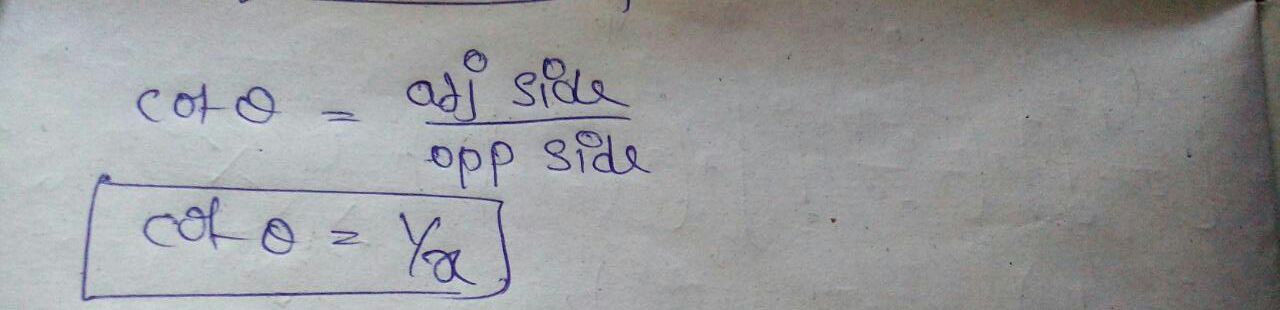 cot θ = adj side / opp side
cot θ = 1/x